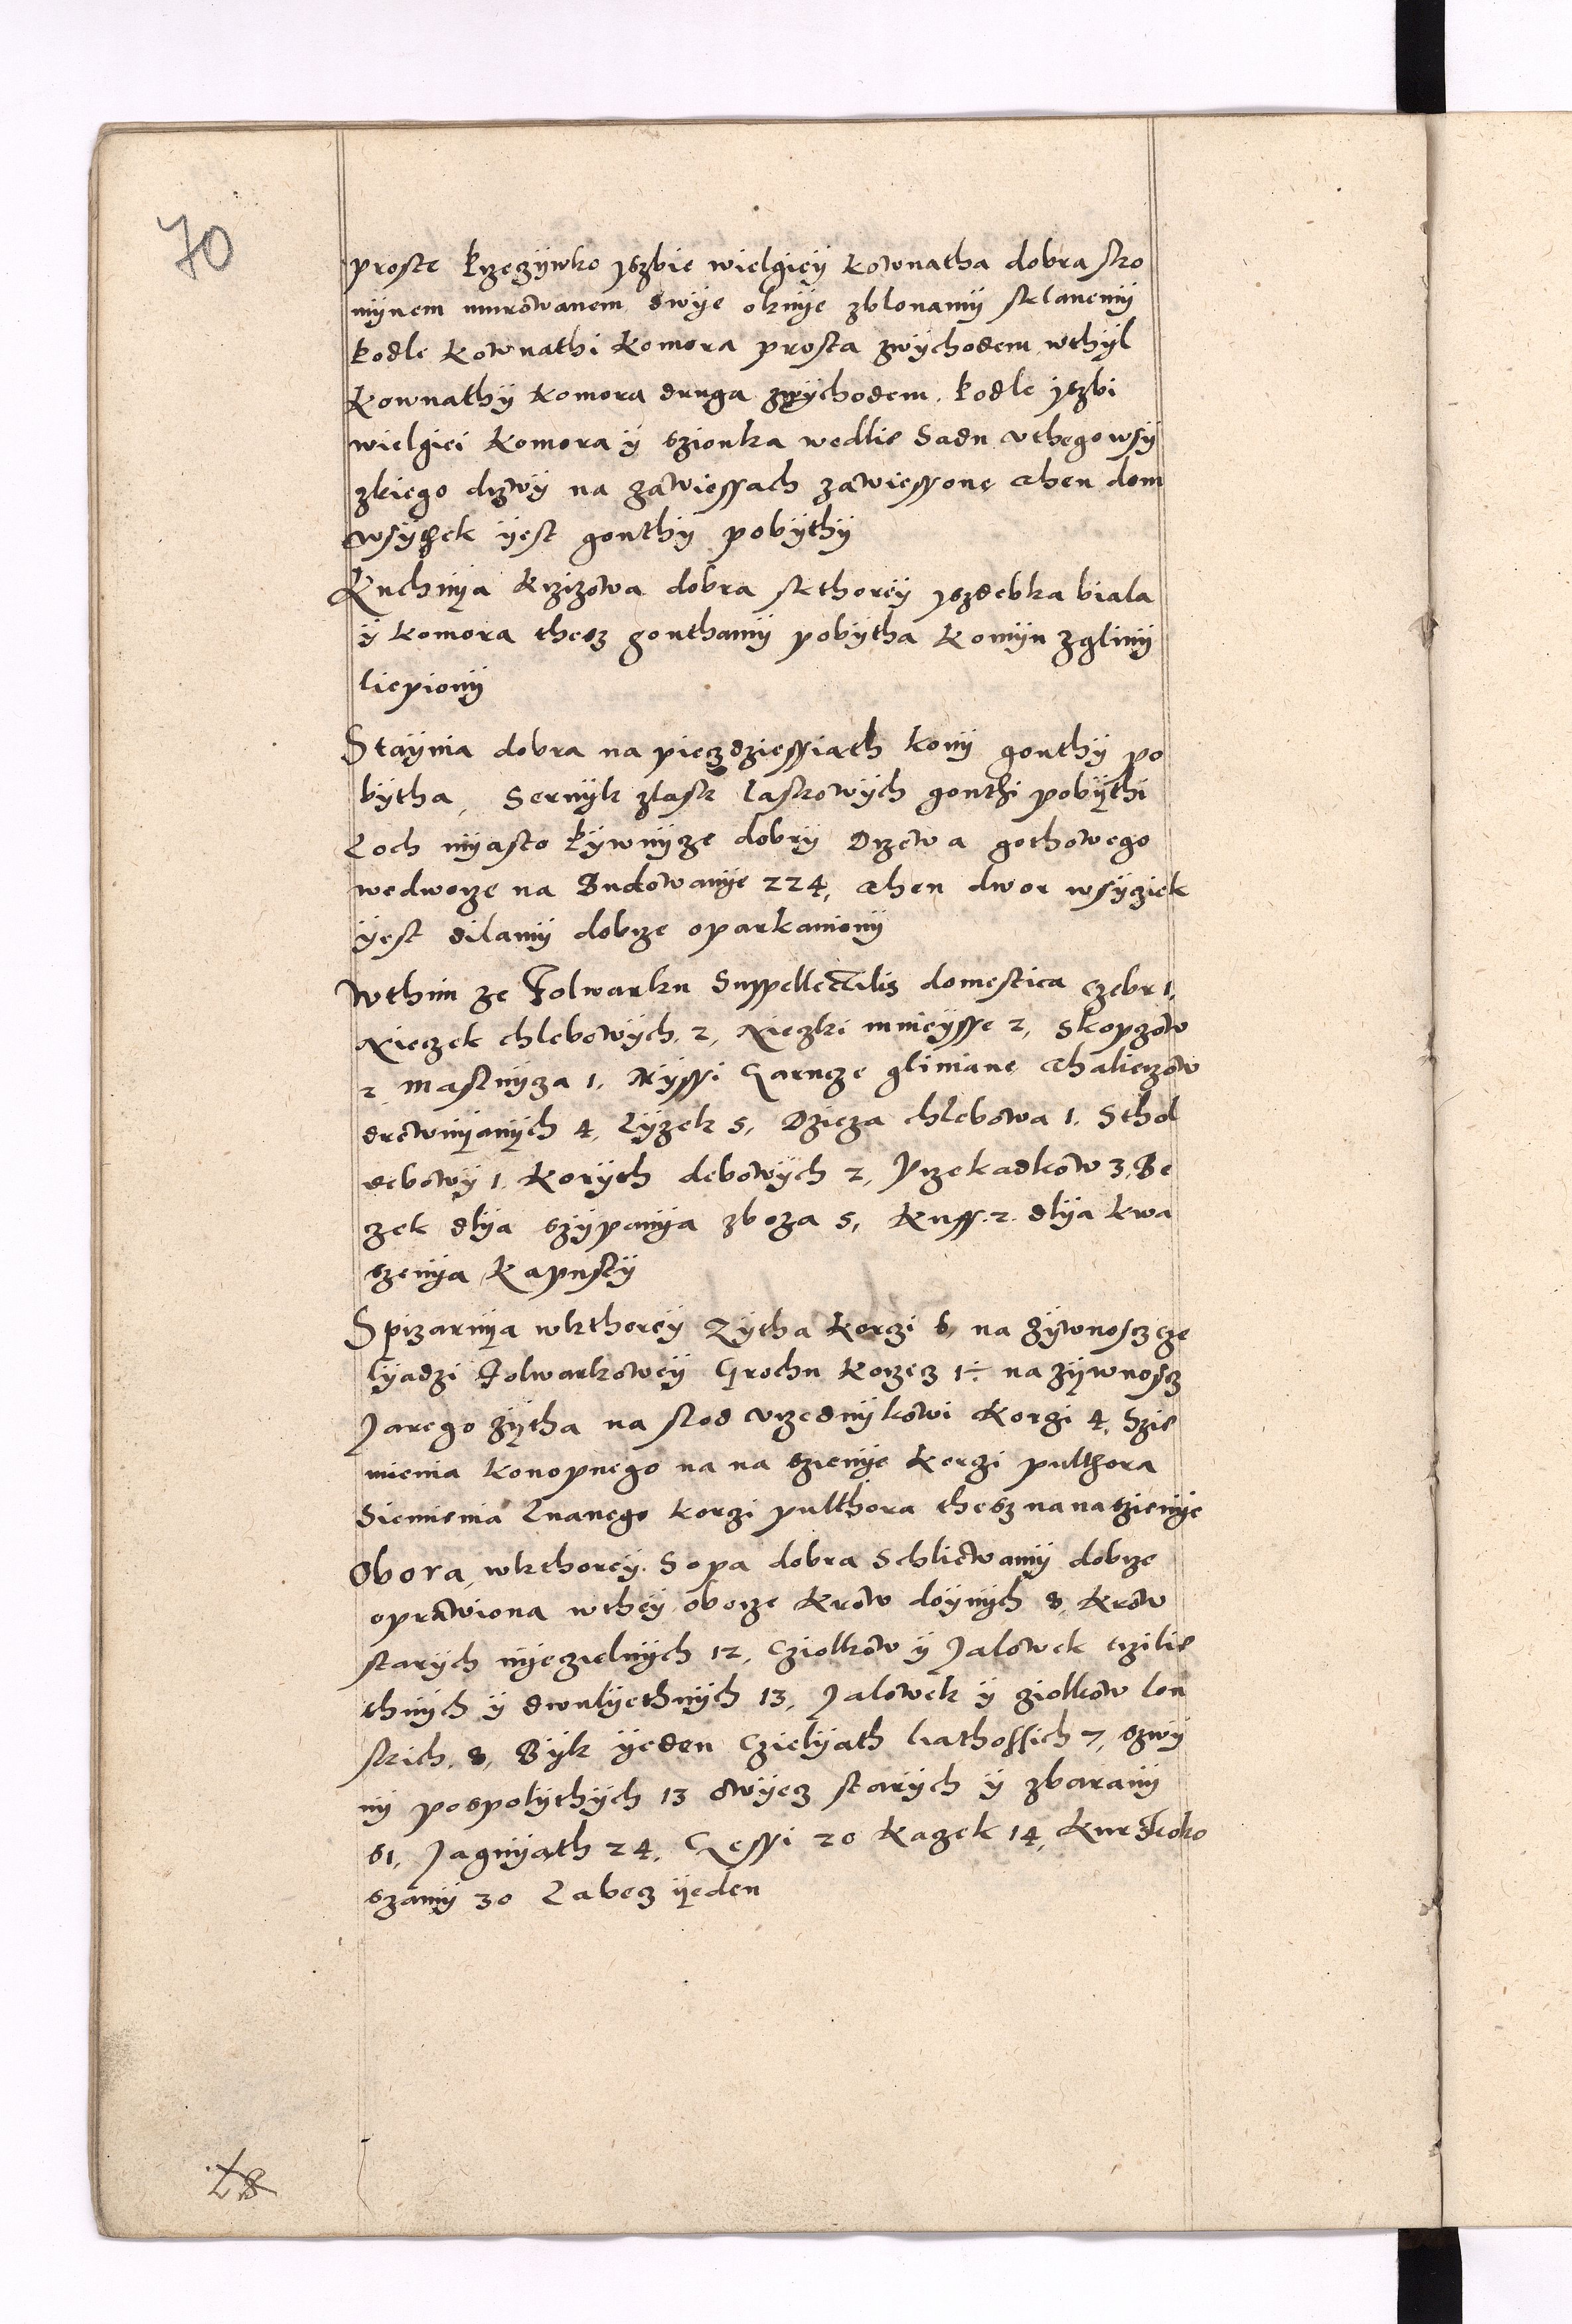 70
proste Przeczywko yszbie wielgiey kownatha dobra sko
mynem murowanem dwye oknye zblonamy sklanemy
Podle kownathi komora prosta zwychodem wthyl
kownathy komora druga zwychodem. Podle yszbi
wielgiei komora y szionka wedlie Sadu vthegowsy
zkiego drzwy na zawiessach zawiessone Then dom
wsythek yest gonthy pobythy
Kuchnya krzizowa dobra skthorey yszdebka biala
y komora thesz gonthamy pobytha komyn zgliny
liepiony
Staynia dobra na pieczdziessiath kony gonthy po
bytha, Sernyk zlask laskowych gonthi pobythi
Loch myasto Pywnycze dobry Drzewa gothowego
wedworze na Budowanye 224, Then dwor wsyciek
yest dilamy dobrze oparkaniony
Wthim ze Folwarku Suppellectilis domestica czebr 1,
Nieczek chlebowych 2, Nieczki mnieysse 2, Skopczow
2 Maslnycza 1, Myssi Garncze gliniane Thaliezow
drewnyanych 4, Lyzek 5, Dzieza chlebowa 1. Sthol
debowy 1. Koryth debowych 2, Przekadkow 3, Be
czek dlya szypanya zboza 5, Kuff. 2. dlya kwa
szenya Kapusty
Spizarnya wkthorey Zytha korzi 6, na zywnoscz cze
lyadzi Folwarkowey Grochu korzecz 1÷ na zywnoscz
Jarego zytha na slod vrzednykowi Korzi 4, Szie
mienia konopnego na na szienye korzi pulthora
Siemienia Lnanego korzi pulthora thesz na naszienye
Obora, wkthorey Sopa dobra Schliewamy dobrze
oprawiona wthey oborze krow doynych 8, krow
starych nyeczielnych 12, Cziolkow y Jalowek trzilie
thnych y dwulyethnych 13, Jalowek y ziolkow lon
skich. 8, Byk yeden Czielyath liathossich 7, szwy
ny pospolythych 13 Owyecz starych y zbarany
61, Jagnyath 24, Gessi 20 Kaczek 14, Kur zkoko
szamy 30 Labecz yeden